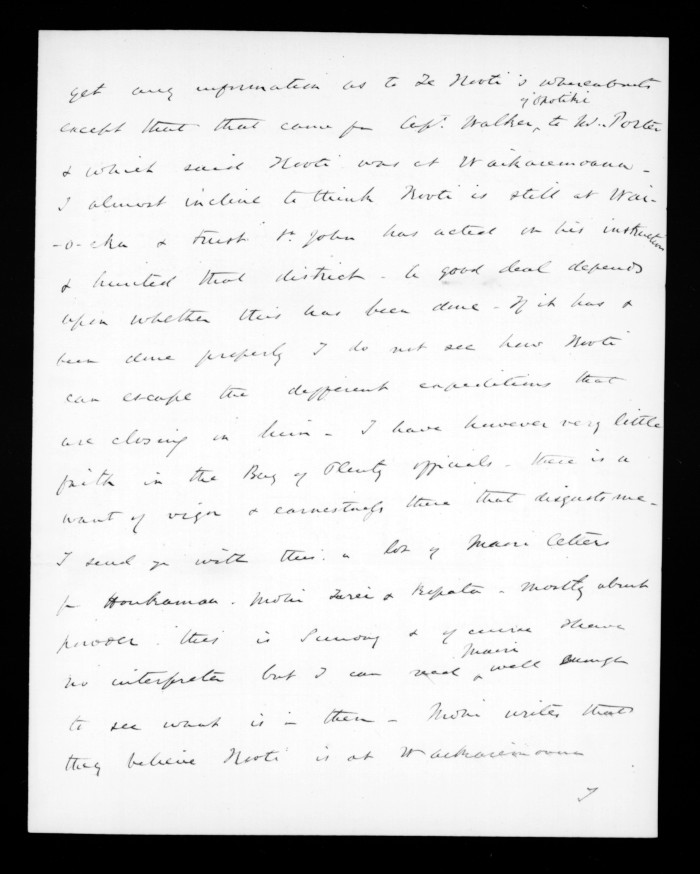 get any information as to Te Kooti's whereabouts
except that that came fm Capt. Walker, of Opotiki to Mr. Porter
& which said Kooti was at Waikaremoana -
I almost incline to think Kooti is still at Wai-
-o-eka & trust St. John has acted on his instructions
& hunted that district - A good deal depends
upon whether this has been done - If it has &
been done properly I do not see how Kooti
can escape the different expeditions that
are closing in him - I have however very little
faith in the Bay of Plenty officials - there is a
want of vigor & earnestness there that disgusts me -
I send you with this a lot of Maori letters
fm Honkamau - Mohi Turei & Ropata - mostly about
powder this is Sunday & of course I have
no interpreter but I can read Maori well enough
to see what is in them - Mohi writes that
they believe Kooti is at Waikaremoana
I